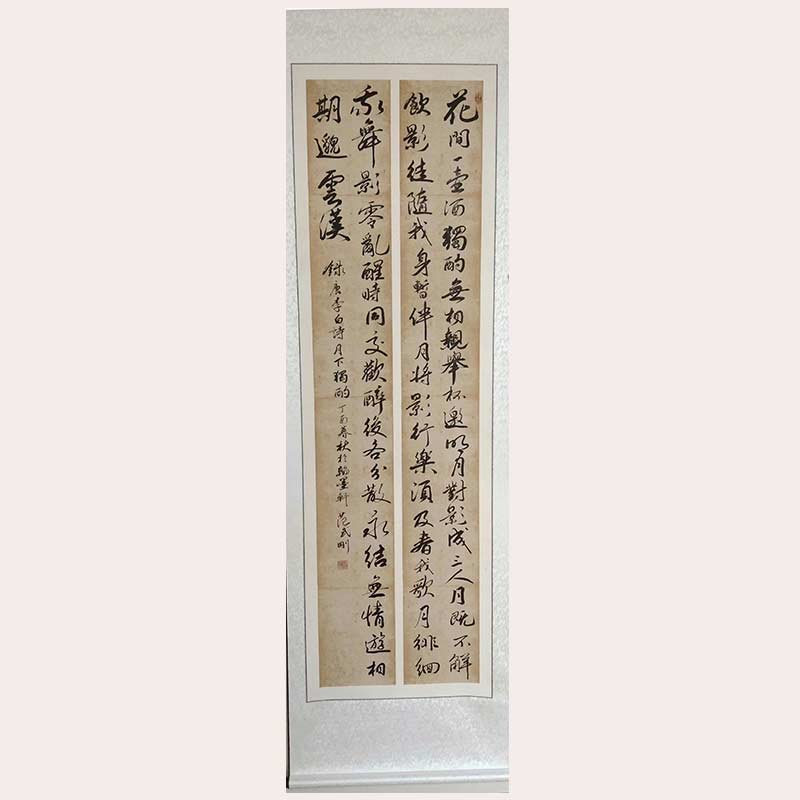 花間一壺酒獨酌無相親舉杯邀明月對影成三人月既不解
飲影徒隨我身暫伴月將影行樂須及春我歌月徘徊
我舞影零亂醒時同交歡醉後各分散永結無情遊相
期邈雲漢 錄唐李白詩月下獨酌 丁酉秋於翰墨軒 范剛